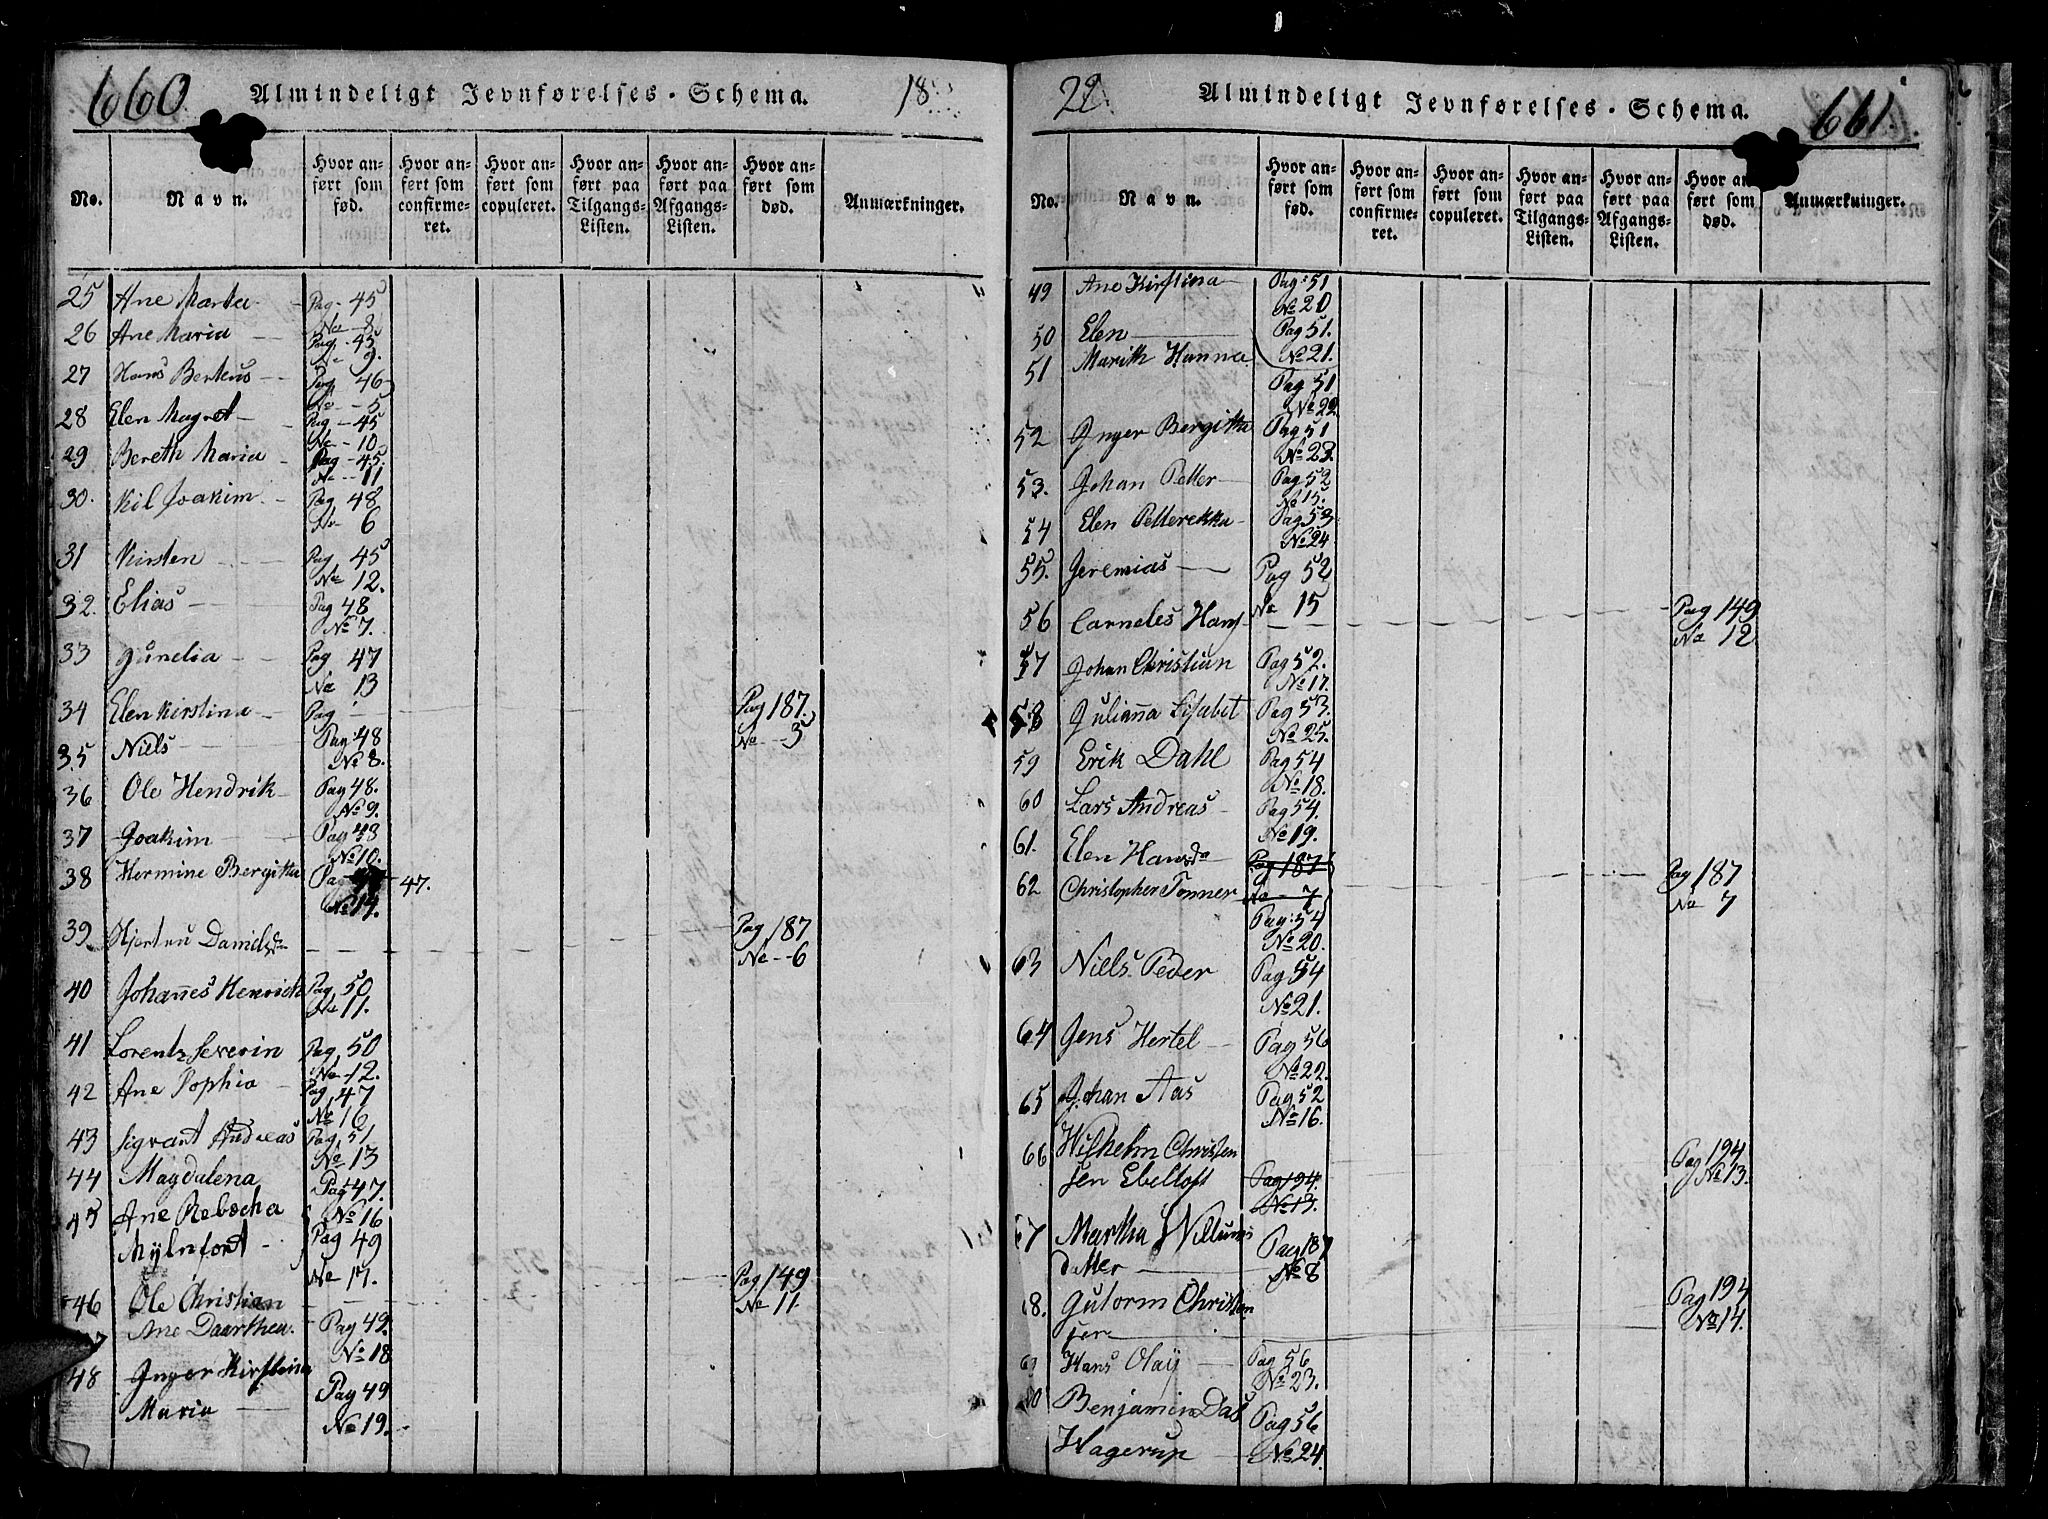 660. Almindeligt Jevnførelses-Schema. 18
No. Navn. Hvor anført som fød. Hvor anført som confirmeret. Hvor anført som copuleret. Hvor anført paa Tilgangs-Listen. Hvor anført paa Afgangs-Listen. Hvor anført som død. Anmærkninger.
25 Ane Marta Pag 45
No 8
26 Ane Maria Pag 45
No 9.
27 Hans Berteus Pag 46
No 5
28 Elen Magret Pag 45
No 10
29 Bereth Maria Pag 45
No 11
30. Kil Joakim Pag 48
No 6
31 Kirsten Pag 45
No 12.
32. Elias Pag 48
No 7.
33 Gunelia Pag 47
No 13
34 Elen Kirstina Pag Pag 187.
No 5
35 Niels Pag 48
No 8.
36 Ole Hendrik Pag 48.
No 9.
37 Joakim Pag 48
No 10.
38 Hermine Bergitta Pag 47.
No 14.
39 Daniels Pag 187
No 6
40 Johañes Henrich Pag 50
No 11.
41 Lorentz Severin Pag 50
No 12.
42 Ane Sophia Pag 47
No 16
43 Sigvant Andreas Pag 51
No 13
44 Magdalena Pag 47.
No 16
45 Ane Rebocha Pag 49
Mÿlnfort No 17.
46 Ole Christian Pag 149
No 11.
Ane Daarthea Pag 49.
No 18
48 Inger Kirstina Pag 49
Maria No 19.
22. Almindeligt Jevnførelses-Schema. 661.
No. Navn. Hvor anført som fød. Hvor anført som confirmeret. Hvor anført som copuleret. Hvor anført paa Tilgangs-Listen. Hvor anført paa Afgangs-Listen. Hvor anført som død. Anmærkninger.
49 Ane Kirstina Pag 51
No 20
50 Elen Pag 51.
No 21.
51 Marith Hanna Pag 51
No 22
52 Inger Bergitta Pag 51
No 23.
53. Johan Petter Pag 52
No 15.
54 Elen Petterekka Pag 53
No 24
55. Jeremias Pag 52
No 15
56 Carneles Hans Pag 149
No 12
57 Johan Christian Pag 52.
No 17.
58 Juliaña Lisabet Pag 53.
No 25.
59 Erik Dahl Pag 54
No 18.
60 Lars Andreas Pag 54.
No 19.
61. Elen Hansda Pag 187 Pag 187
No 7 No 7
62 Christopher Tønner Pag 54
No 20.
63 Niels Peder Pag 54
No 21.
64 Jens Hertel Pag 56
No 22.
65 Johan Aas Pag 52
No 16.
66 Wilhelm Christen Pag 194
sen Ebeltoft Pag 194. No 13.
No 13.
67 Martha Willums
datter Pag 187
No 8
8. Gutorm Christen Pag 194
sen No 14.
Hans Olaÿ Pag 56
No 23.
Benjamin Das Pag 56
Wagerup No 24.